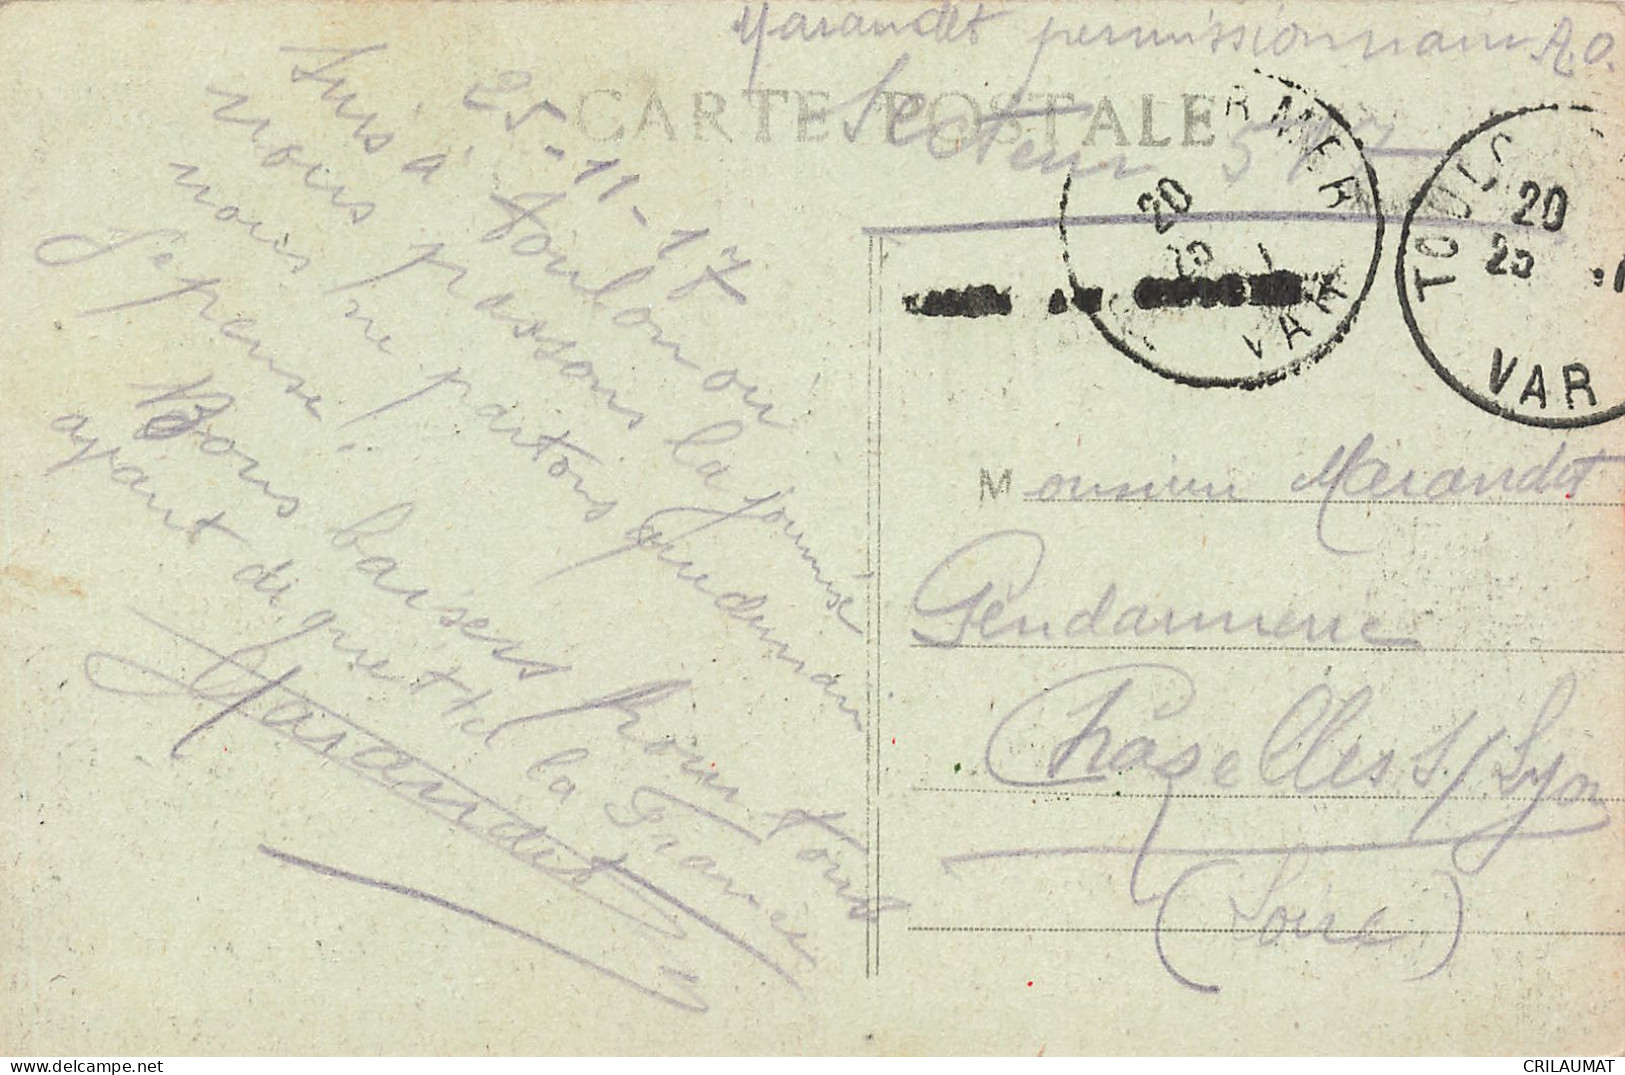 Marandet permissionnaire A.O.
Secteur 517
CARTE POSTALE
25-11-17
Suis à Toulon où
nous passons la journée
nous ne partons que demain
Je pense.
Bons baisers pour tous
ayant de quitter la France
Marandet
RMER
20
25
VAR
TOULO
20
25
VAR
Monsieur Marandet
Gendarmerie
Chazelles s/Lyon
(Loire)
delcampe.net
CRILAUMAT